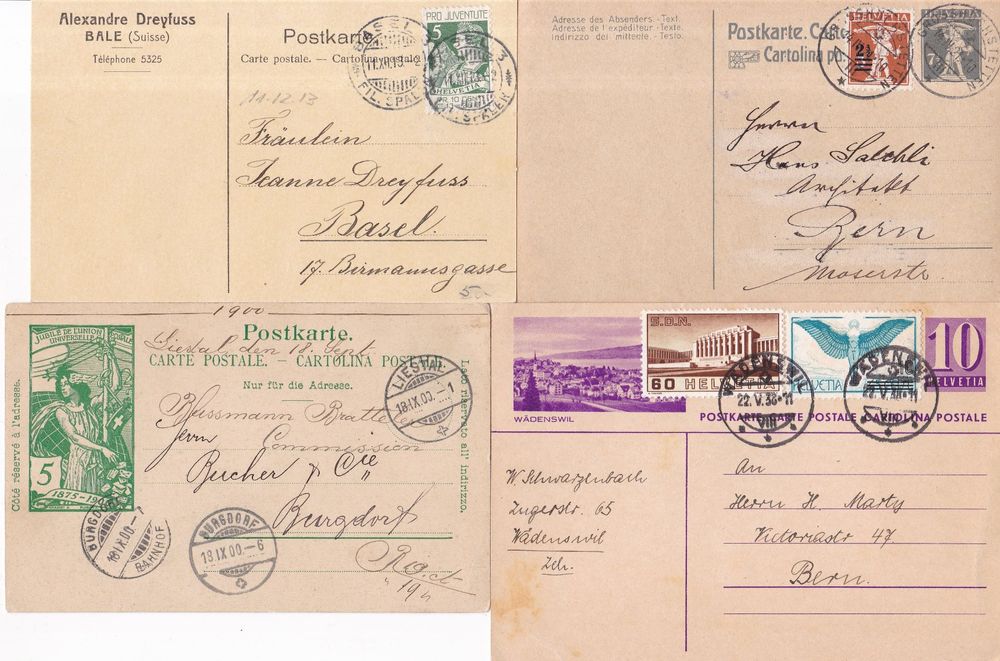 Alexandre Dreyfuss
BALE (Suisse)
Téléphone 5325
Postkarte
Carte postale. — Cartolina postale
PRO JUVENTUTE
5
HELVETIA
BASEL
11.XII.13
FIL. SPALEN
11.12.13
Fräulein
Jeanne Dreyfuss
Basel.
17. Birmannsgasse
5.-
Adresse des Absenders - Text.
Adresse de l'expéditeur - Texte.
Indirizzo del mittente. - Testo.
Postkarte. Carte
Cartolina po
2½
HELVETIA
Herrn
Hans Salchli
Architekt
Bern
Moserstr.
1900
Postkarte.
Liestal den 18. Sept.
CARTE POSTALE. - CARTOLINA POSTALE
Nur für die Adresse.
JUBILÉ DE L'UNION
UNIVERSELLE POSTALE
5
1875-1900
Côté réservé à l'adresse.
Lato riservato all' indirizzo.
LIESTAL
18.IX.00.-1
Herrn
Commission
Bucher & Cie
Burgdorf
BURGDORF
18.IX.00.-6
BURGDORF
18IX00.-7
BAHNHOF
WÄDENSWIL
S.D.N.
60 HELVETIA
HELVETIA
10
HELVETIA
WÄDENSWIL
22.V.38-11
WÄDENSWIL
22.V.38-11
POSTKARTE CARTE POSTALE CARTOLINA POSTALE
W Schwarzenbach
Zugerstr. 65
Wädenswil
Zch.
An
Herrn H. Marty
Victoriastr 47.
Bern.